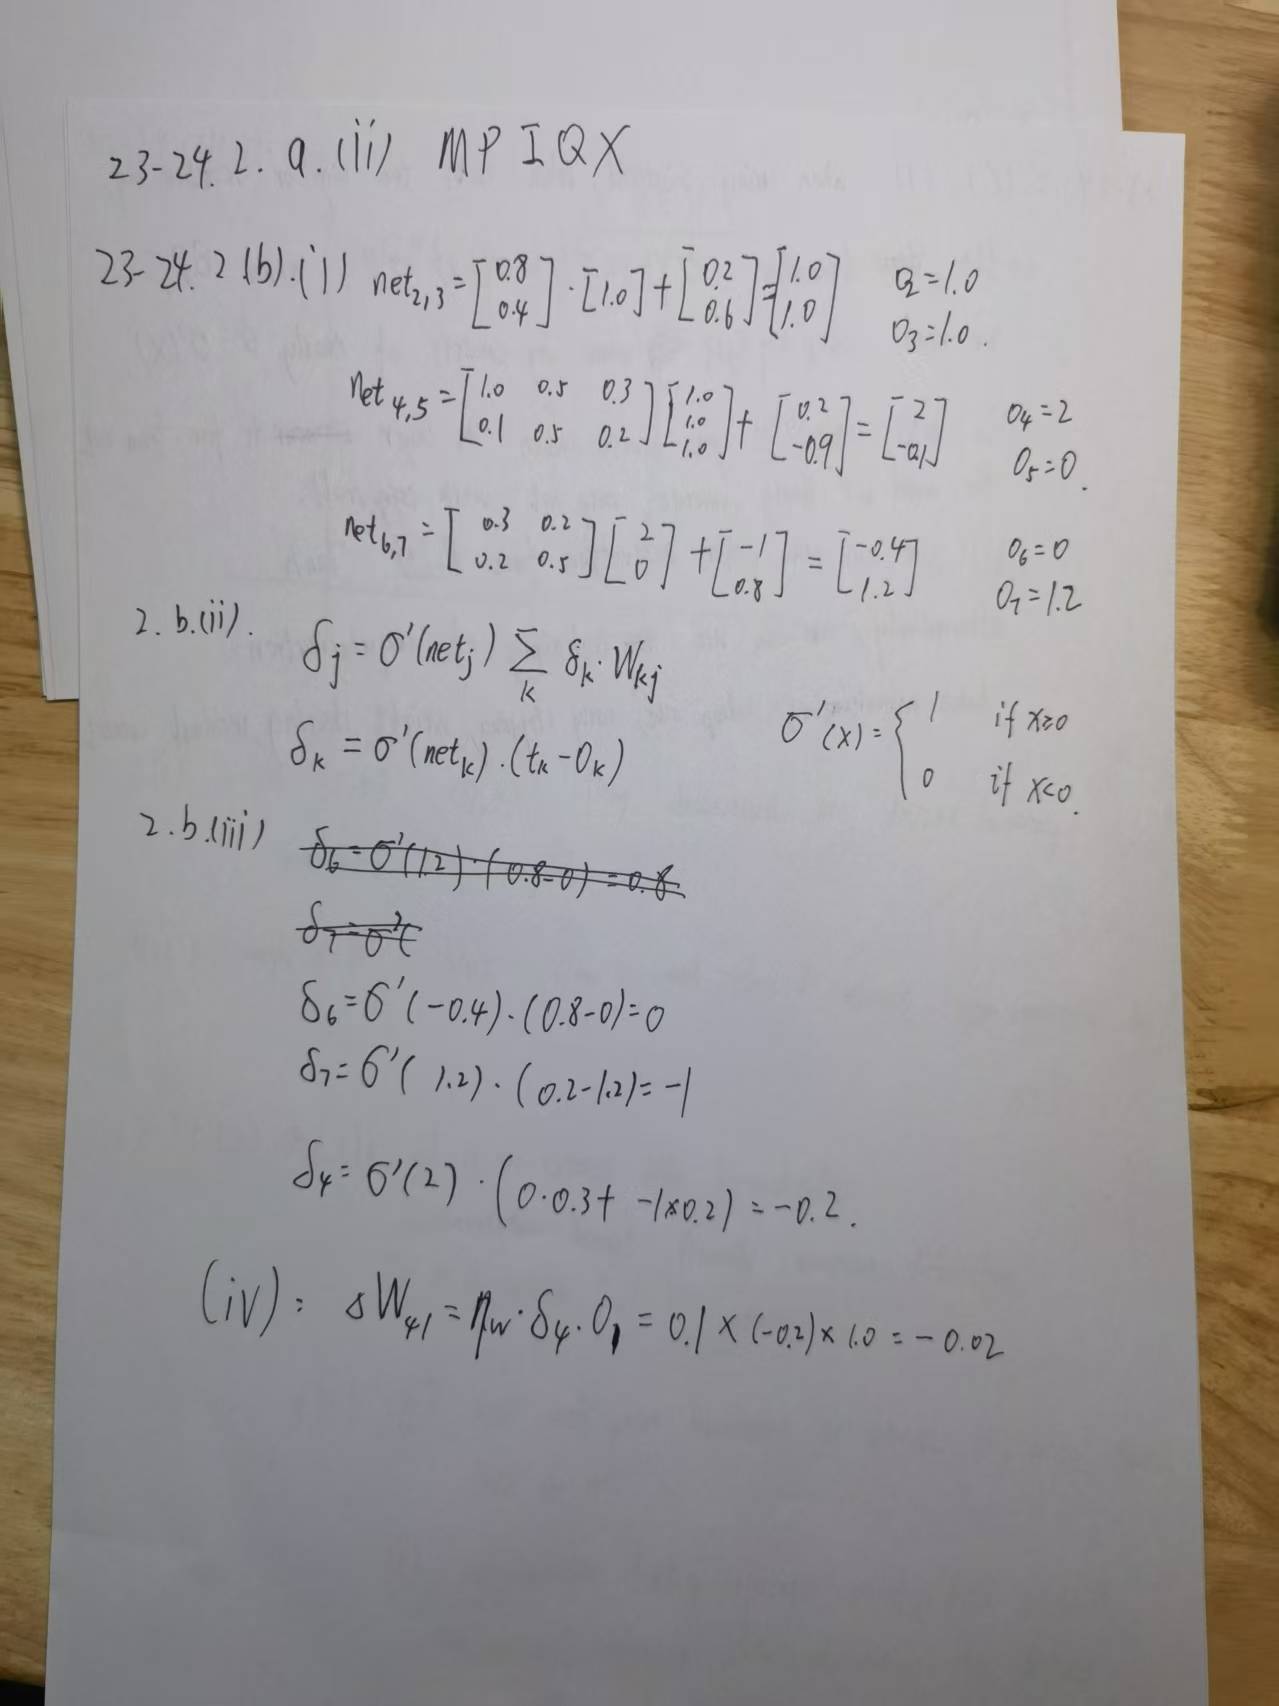 23-24. 2. a.(ii) MPIQX
23-24. 2 (b).(i) net₂,₃ = [0.8; 0.4] · [1.0] + [0.2; 0.6] = [1.0; 1.0] O₂ = 1.0 O₃ = 1.0.
net₄,₅ = [1.0 0.5 0.3; 0.1 0.5 0.2] [1.0; 1.0; 1.0] + [0.2; -0.9] = [2; -0.1] O₄ = 2 O₅ = 0.
net₆,₇ = [0.3 0.2; 0.2 0.5] [2; 0] + [-1; 0.8] = [-0.4; 1.2] O₆ = 0 O₇ = 1.2
2. b.(ii). δⱼ = σ'(netⱼ) Σₖ δₖ · Wₖⱼ
δₖ = σ'(netₖ) · (tₖ - Oₖ) σ'(x) = { 1 if x≥0; 0 if x<0.
2. b.(iii) δ₆ = σ'(1.2) · (0.8-0) = 0.8
δ₇ = σ'(
δ₆ = σ'(-0.4) · (0.8-0) = 0
δ₇ = σ'(1.2) · (0.2-1.2) = -1
δ₄ = σ'(2) · (0·0.3 + -1×0.2) = -0.2.
(iv): ΔW₄₁ = ηw · δ₄ · O₁ = 0.1 × (-0.2) × 1.0 = -0.02